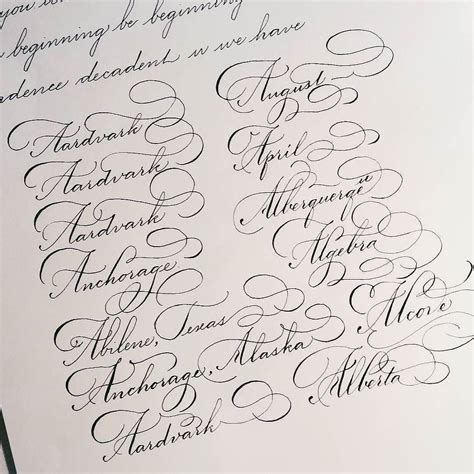 you
beginning be beginning
adence decadent we have
Aardvark
Aardvark
Aardvark
Anchorage
Abilene, Texas
Anchorage, Alaska
Aardvark
August
April
Alberquerque
Algebra
Alcove
Alberta